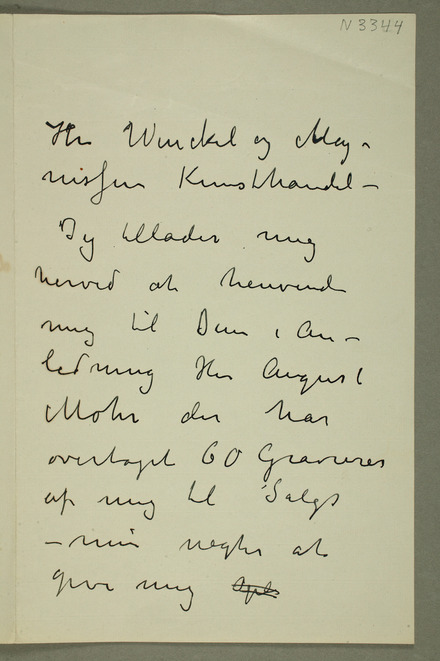 N 3344
Hr Winckel og Mag-
nissen Kunsthandel –
Jeg tillader mig
herved at henvende
mig til Dem i An-
ledning Hr August
Mohr der har
overtaget 60 Gravurer
af mig til Salgs
– men negter at
give mig